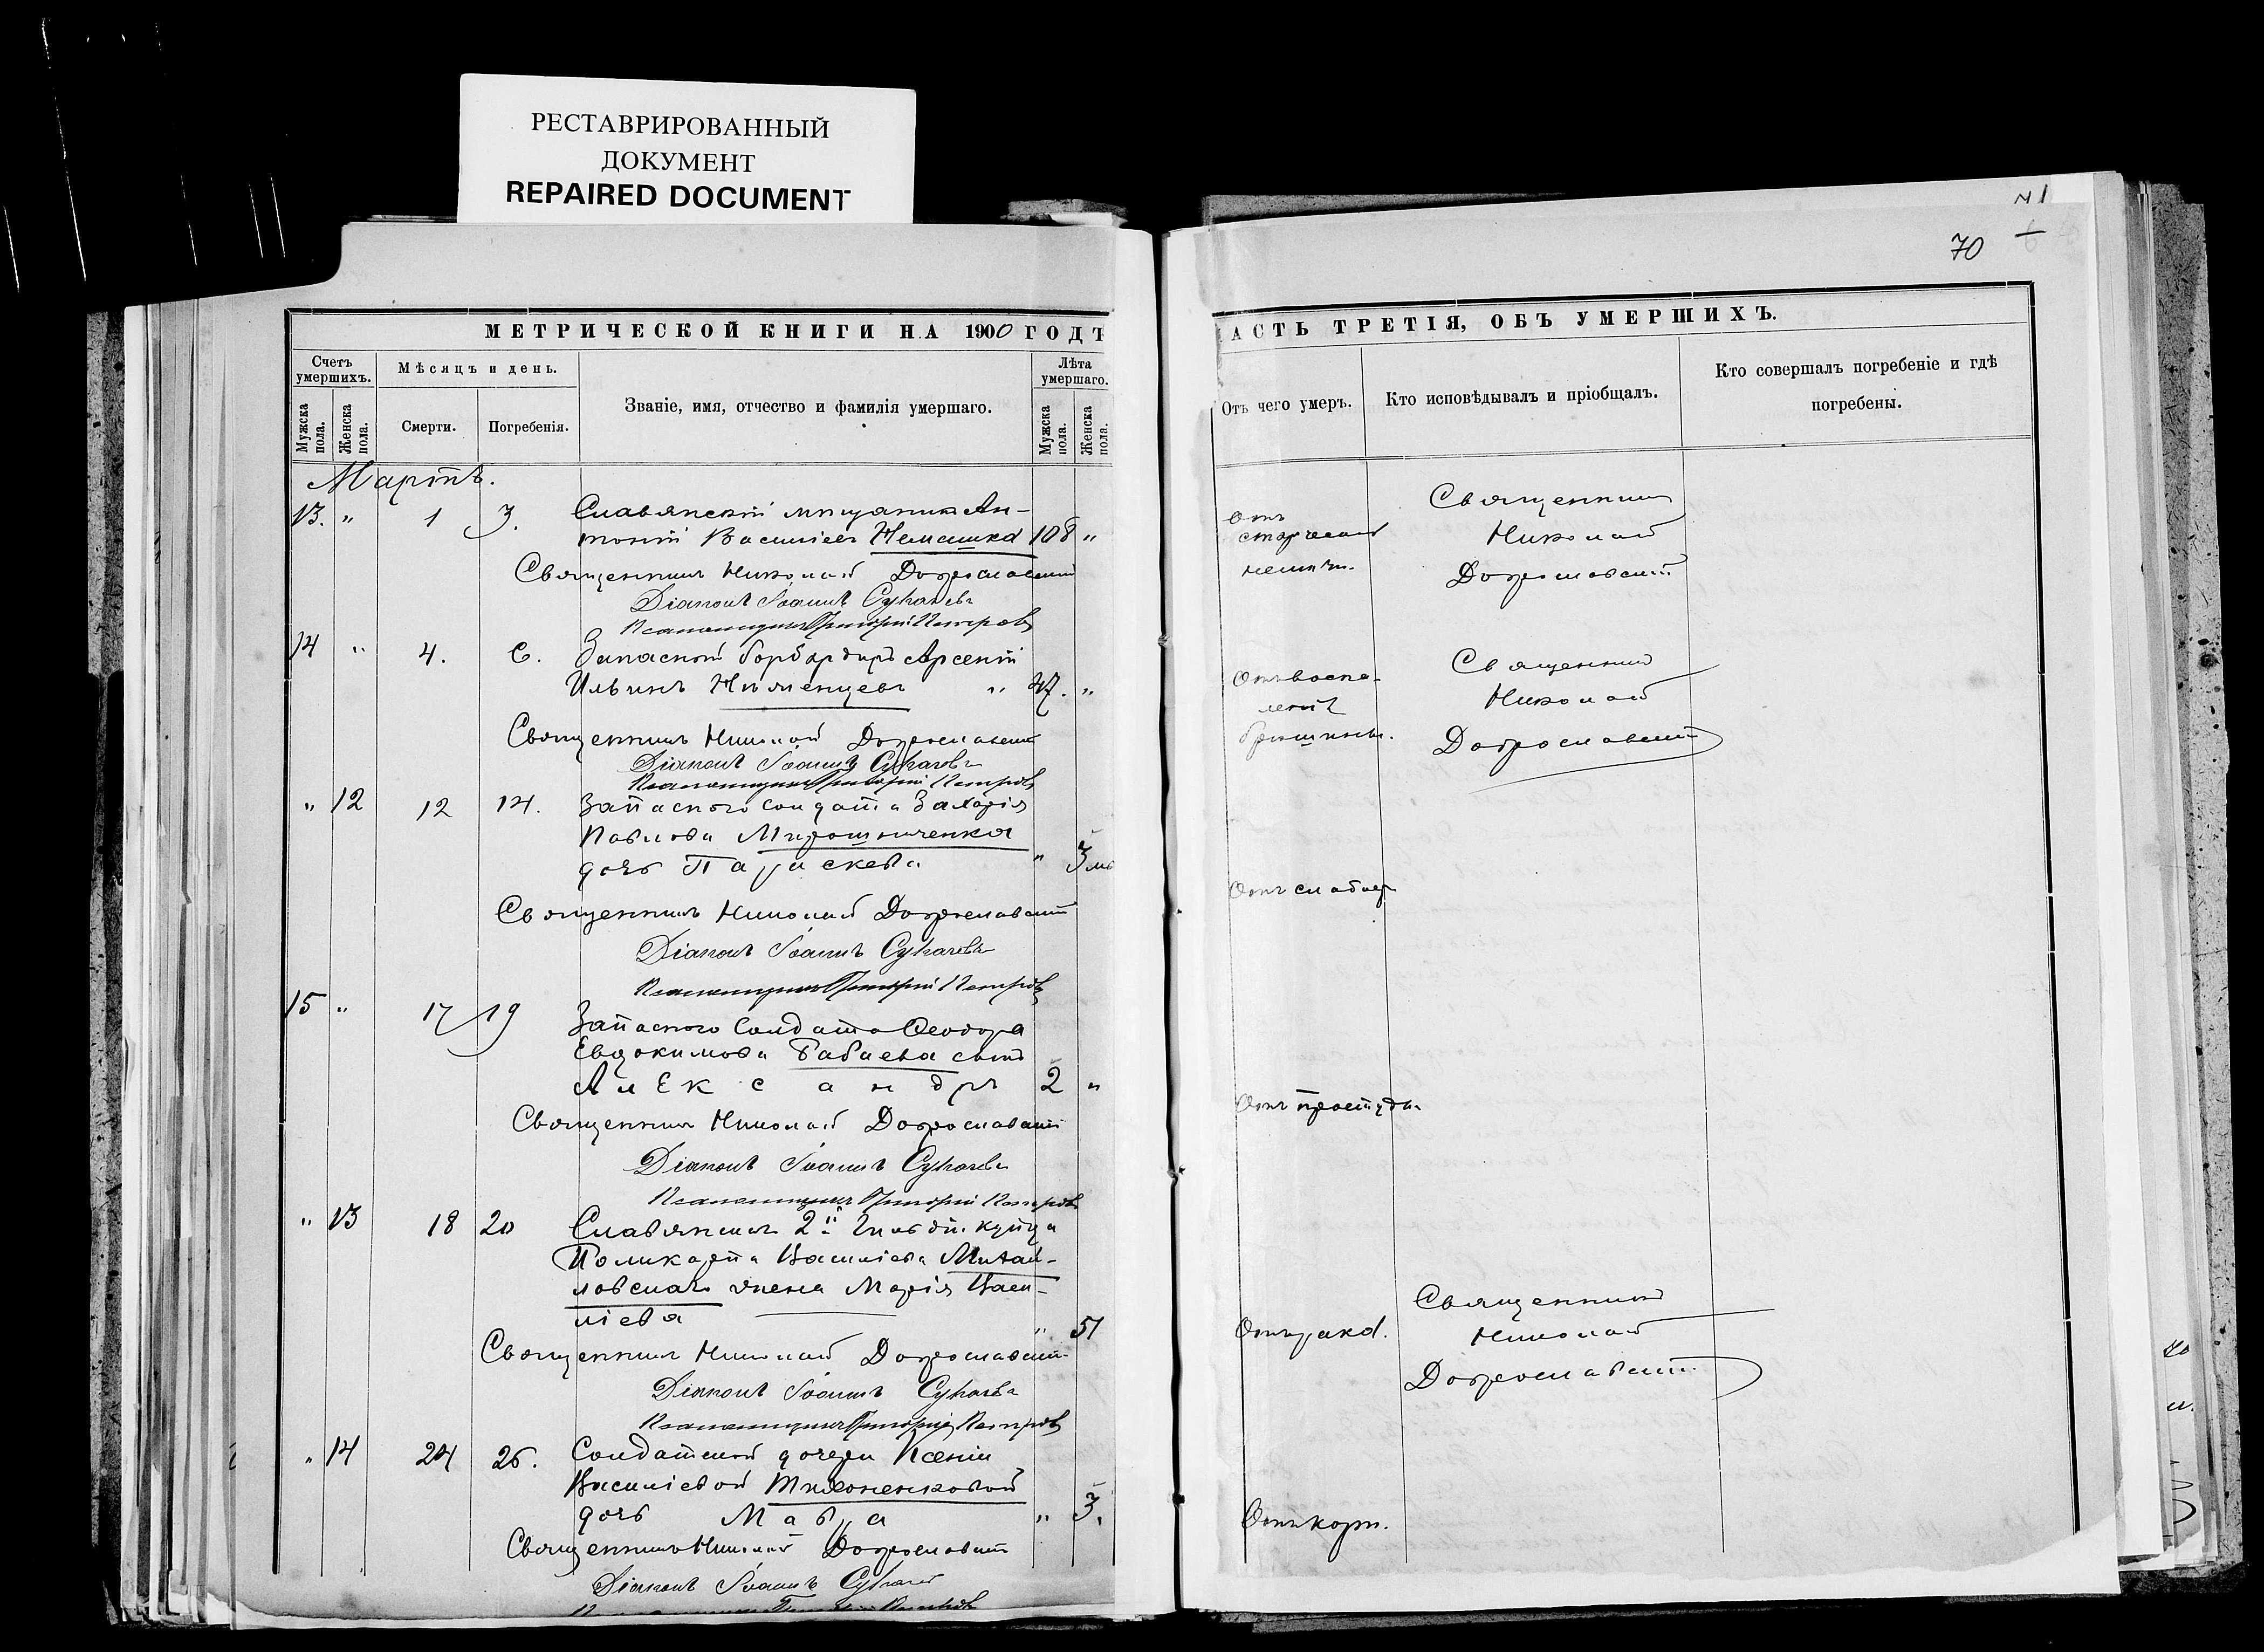 РЕСТАВРИРОВАННЫЙ
ДОКУМЕНТ
REPAIRED DOCUMENT
МЕТРИЧЕСКОЙ КНИГИ НА 1900 ГОДЪ
Счетъ умершихъ.
Мужска пола.
Женска пола.
Мѣсяцъ и день.
Смерти.
Погребенія.
Званіе, имя, отчество и фамилія умершаго.
Лѣта умершаго.
Мужска пола.
Женска пола.
Мартъ.
13. " 1 3. Славянскій мѣщанинъ Ан-
тоній Василіевъ Немашка 108 "
Священникъ Николай Доброславскій
Діаконъ Іоаннъ Сукачевъ
Псаломщикъ Григорій Петровъ
14 " 4. 6. Запасной бомбардиръ Арсеній
Ильинъ Нѣменцевъ " 47. "
Священникъ Николай Доброславскій
Діаконъ Іоаннъ Сукачевъ
Псаломщикъ Григорій Петровъ
" 12 12 14. Запасного солдата Захарія
Павлова Мирошниченка
дочь Параскева " 3 мѣ
Священникъ Николай Доброславскій
Діаконъ Іоаннъ Сукачевъ
Псаломщикъ Григорій Петровъ
15 " 17 19 Запасного Солдата Ѳеодора
Евдокимова Бабаева сынъ
Александръ 2 "
Священникъ Николай Доброславскій
Діаконъ Іоаннъ Сукачевъ
Псаломщикъ Григорій Петровъ
" 13 18 20 Славянскаго 2й Гильдіи купца
Поликарпа Василіева Михай-
ловскаго жена Марія Васи-
ліева " 51
Священникъ Николай Доброславскій
Діаконъ Іоаннъ Сукачевъ
Псаломщикъ Григорій Петровъ
" 14 24 26. Солдатской дочери Ксеніи
Василіевой Тихоненковой
дочь Мавра " 3.
Священникъ Николай Доброславскій
Діаконъ Іоаннъ Сукачевъ
70
АСТЬ ТРЕТІЯ, ОБЪ УМЕРШИХЪ.
Отъ чего умеръ.
Кто исповѣдывалъ и пріобщалъ.
Кто совершалъ погребеніе и гдѣ
погребены.
Отъ
старческой
Священникъ
Николай
Доброславскій
Отъ воспа-
ленія
брюшины.
Священникъ
Николай
Доброславскій
Отъ слабост
Отъ простуды
Отъ рака.
Священникъ
Николай
Доброславскій
Отъ кори.